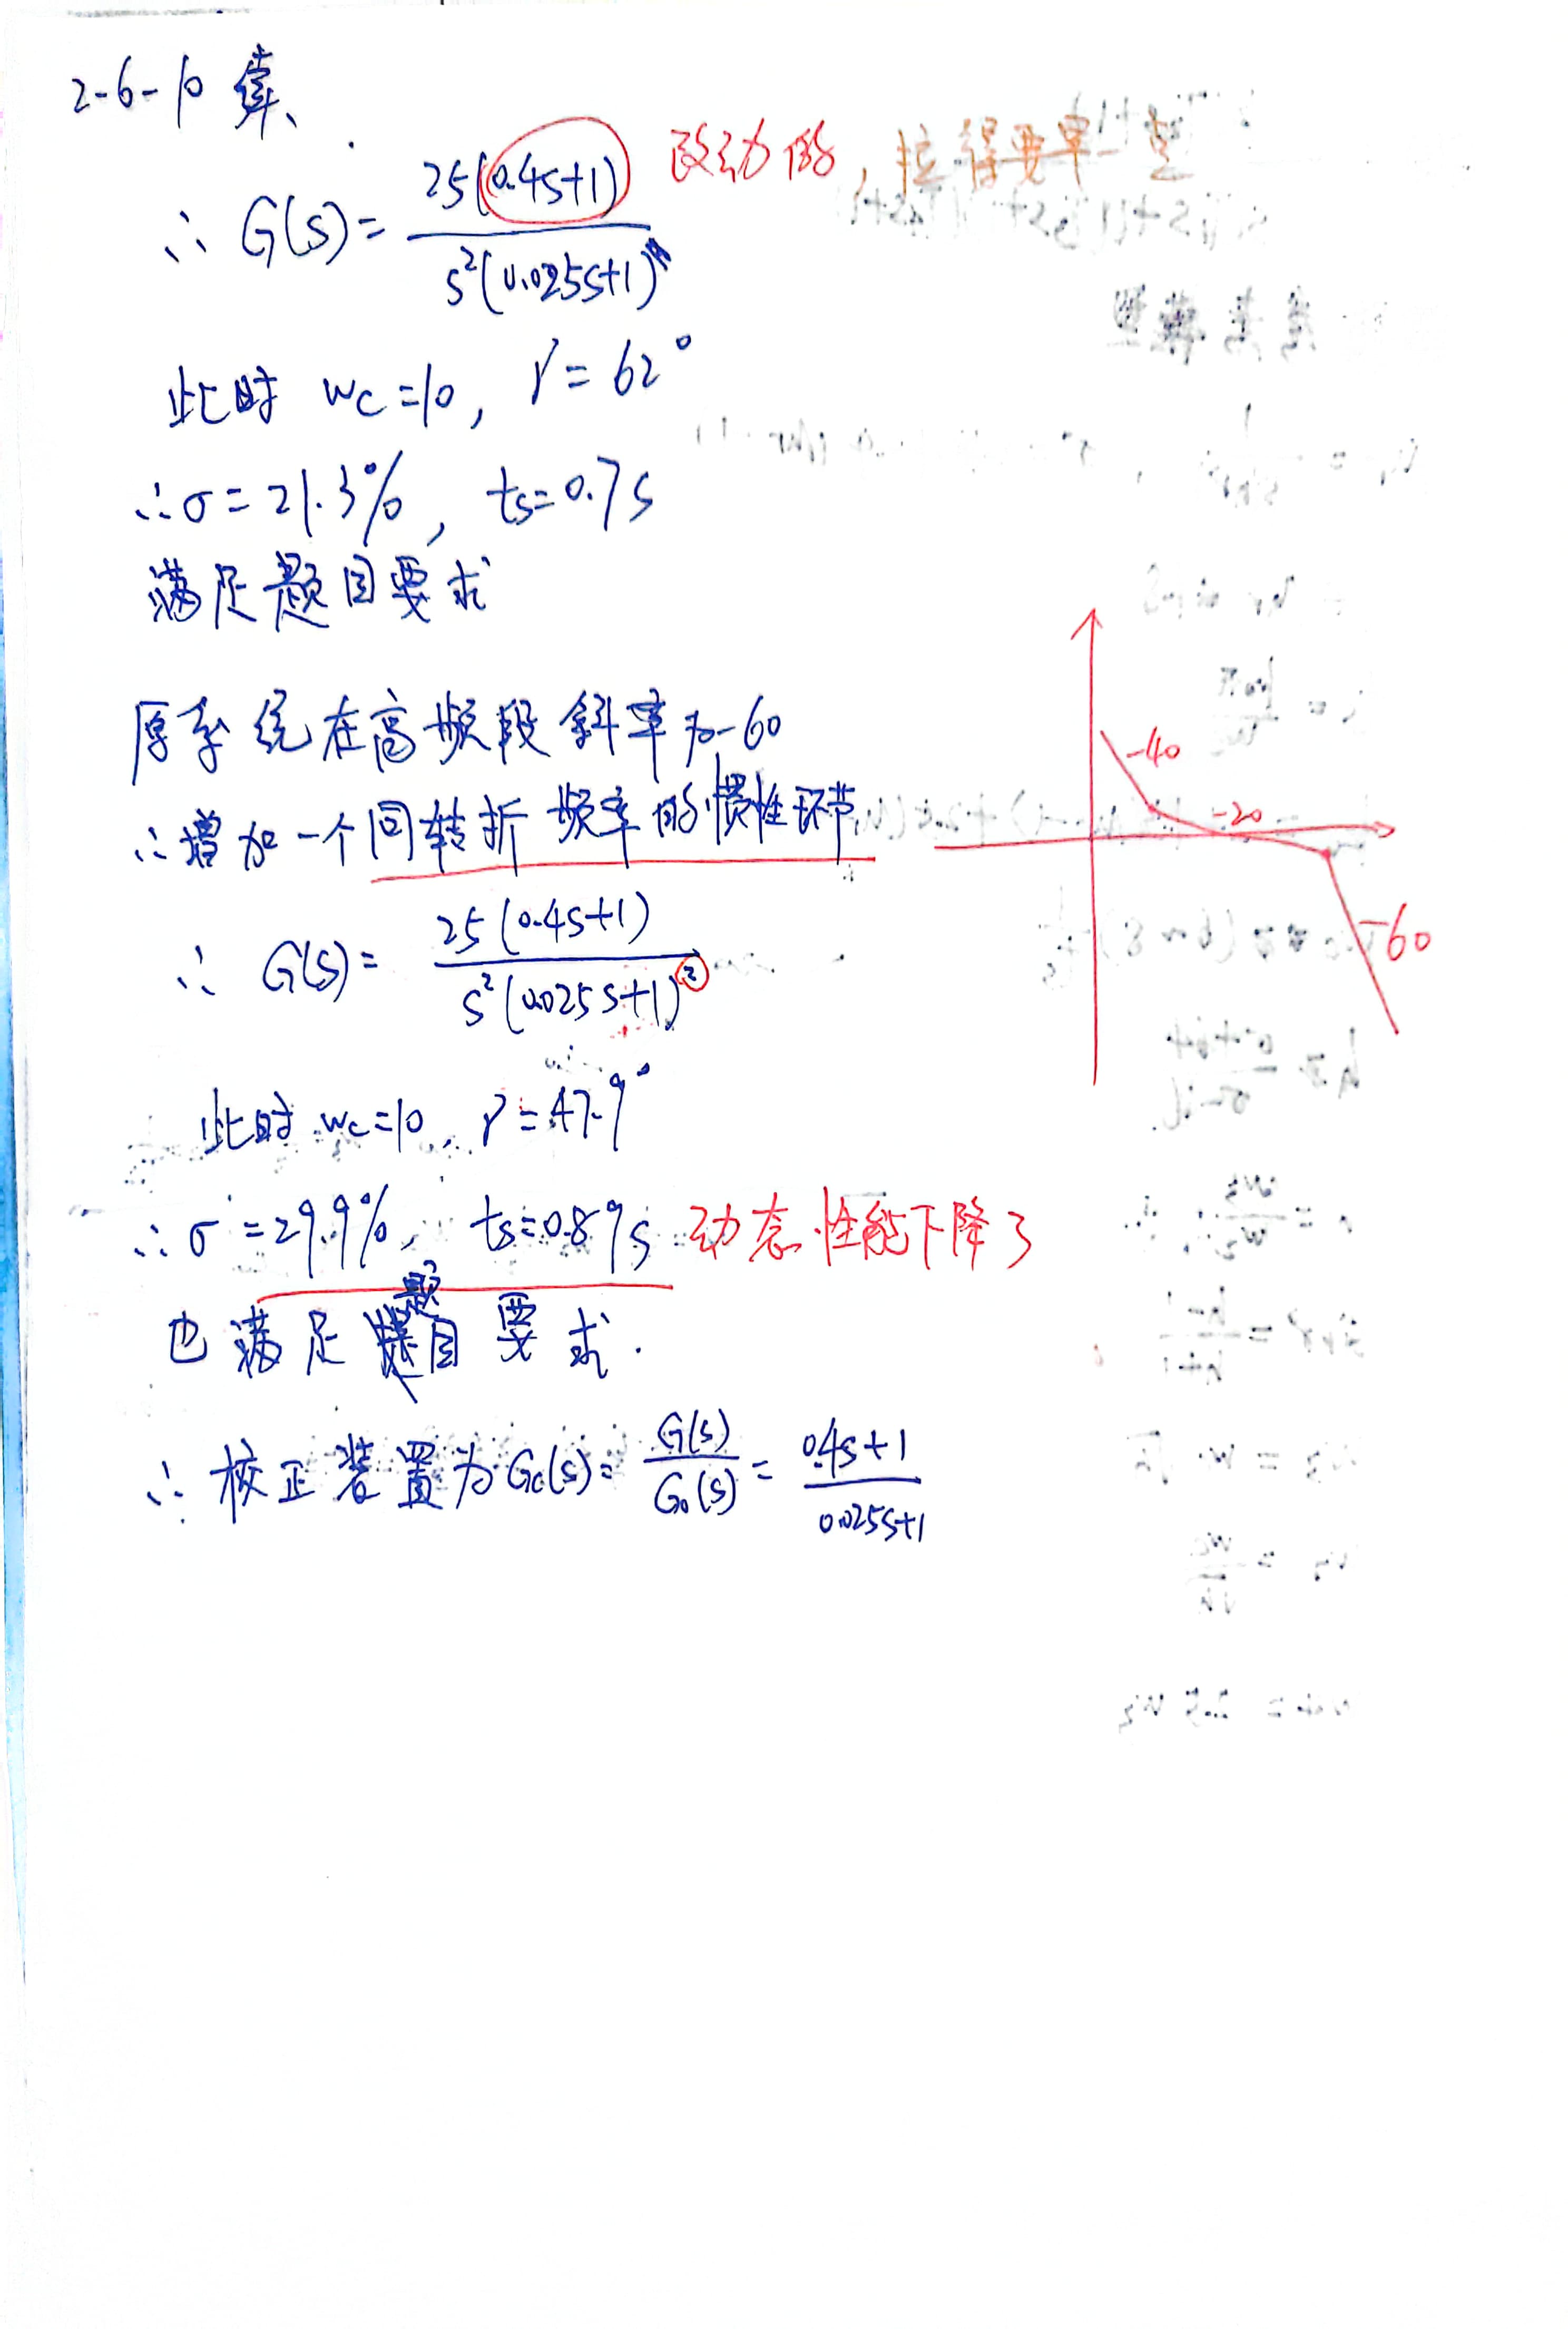 2-6-10 续、
∴ G(s)= 25(0.4s+1) / s²(0.025s+1) 改动的, 拉得要早一点
此时 wc=10, γ=62°
∴σ=21.3%, ts=0.7s
满足题目要求
原系统在高频段斜率为-60
∴增加一个同转折频率的惯性环节
-40
-20
-60
∴ G(s)= 25(0.4s+1) / s²(0.025s+1)²
此时 wc=10, γ=47.9°
∴σ=29.9%, ts=0.89s 动态性能下降了
也满足题目要求.
∴校正装置为Gc(s)= G(s)/G₀(s) = 0.4s+1 / 0.025s+1